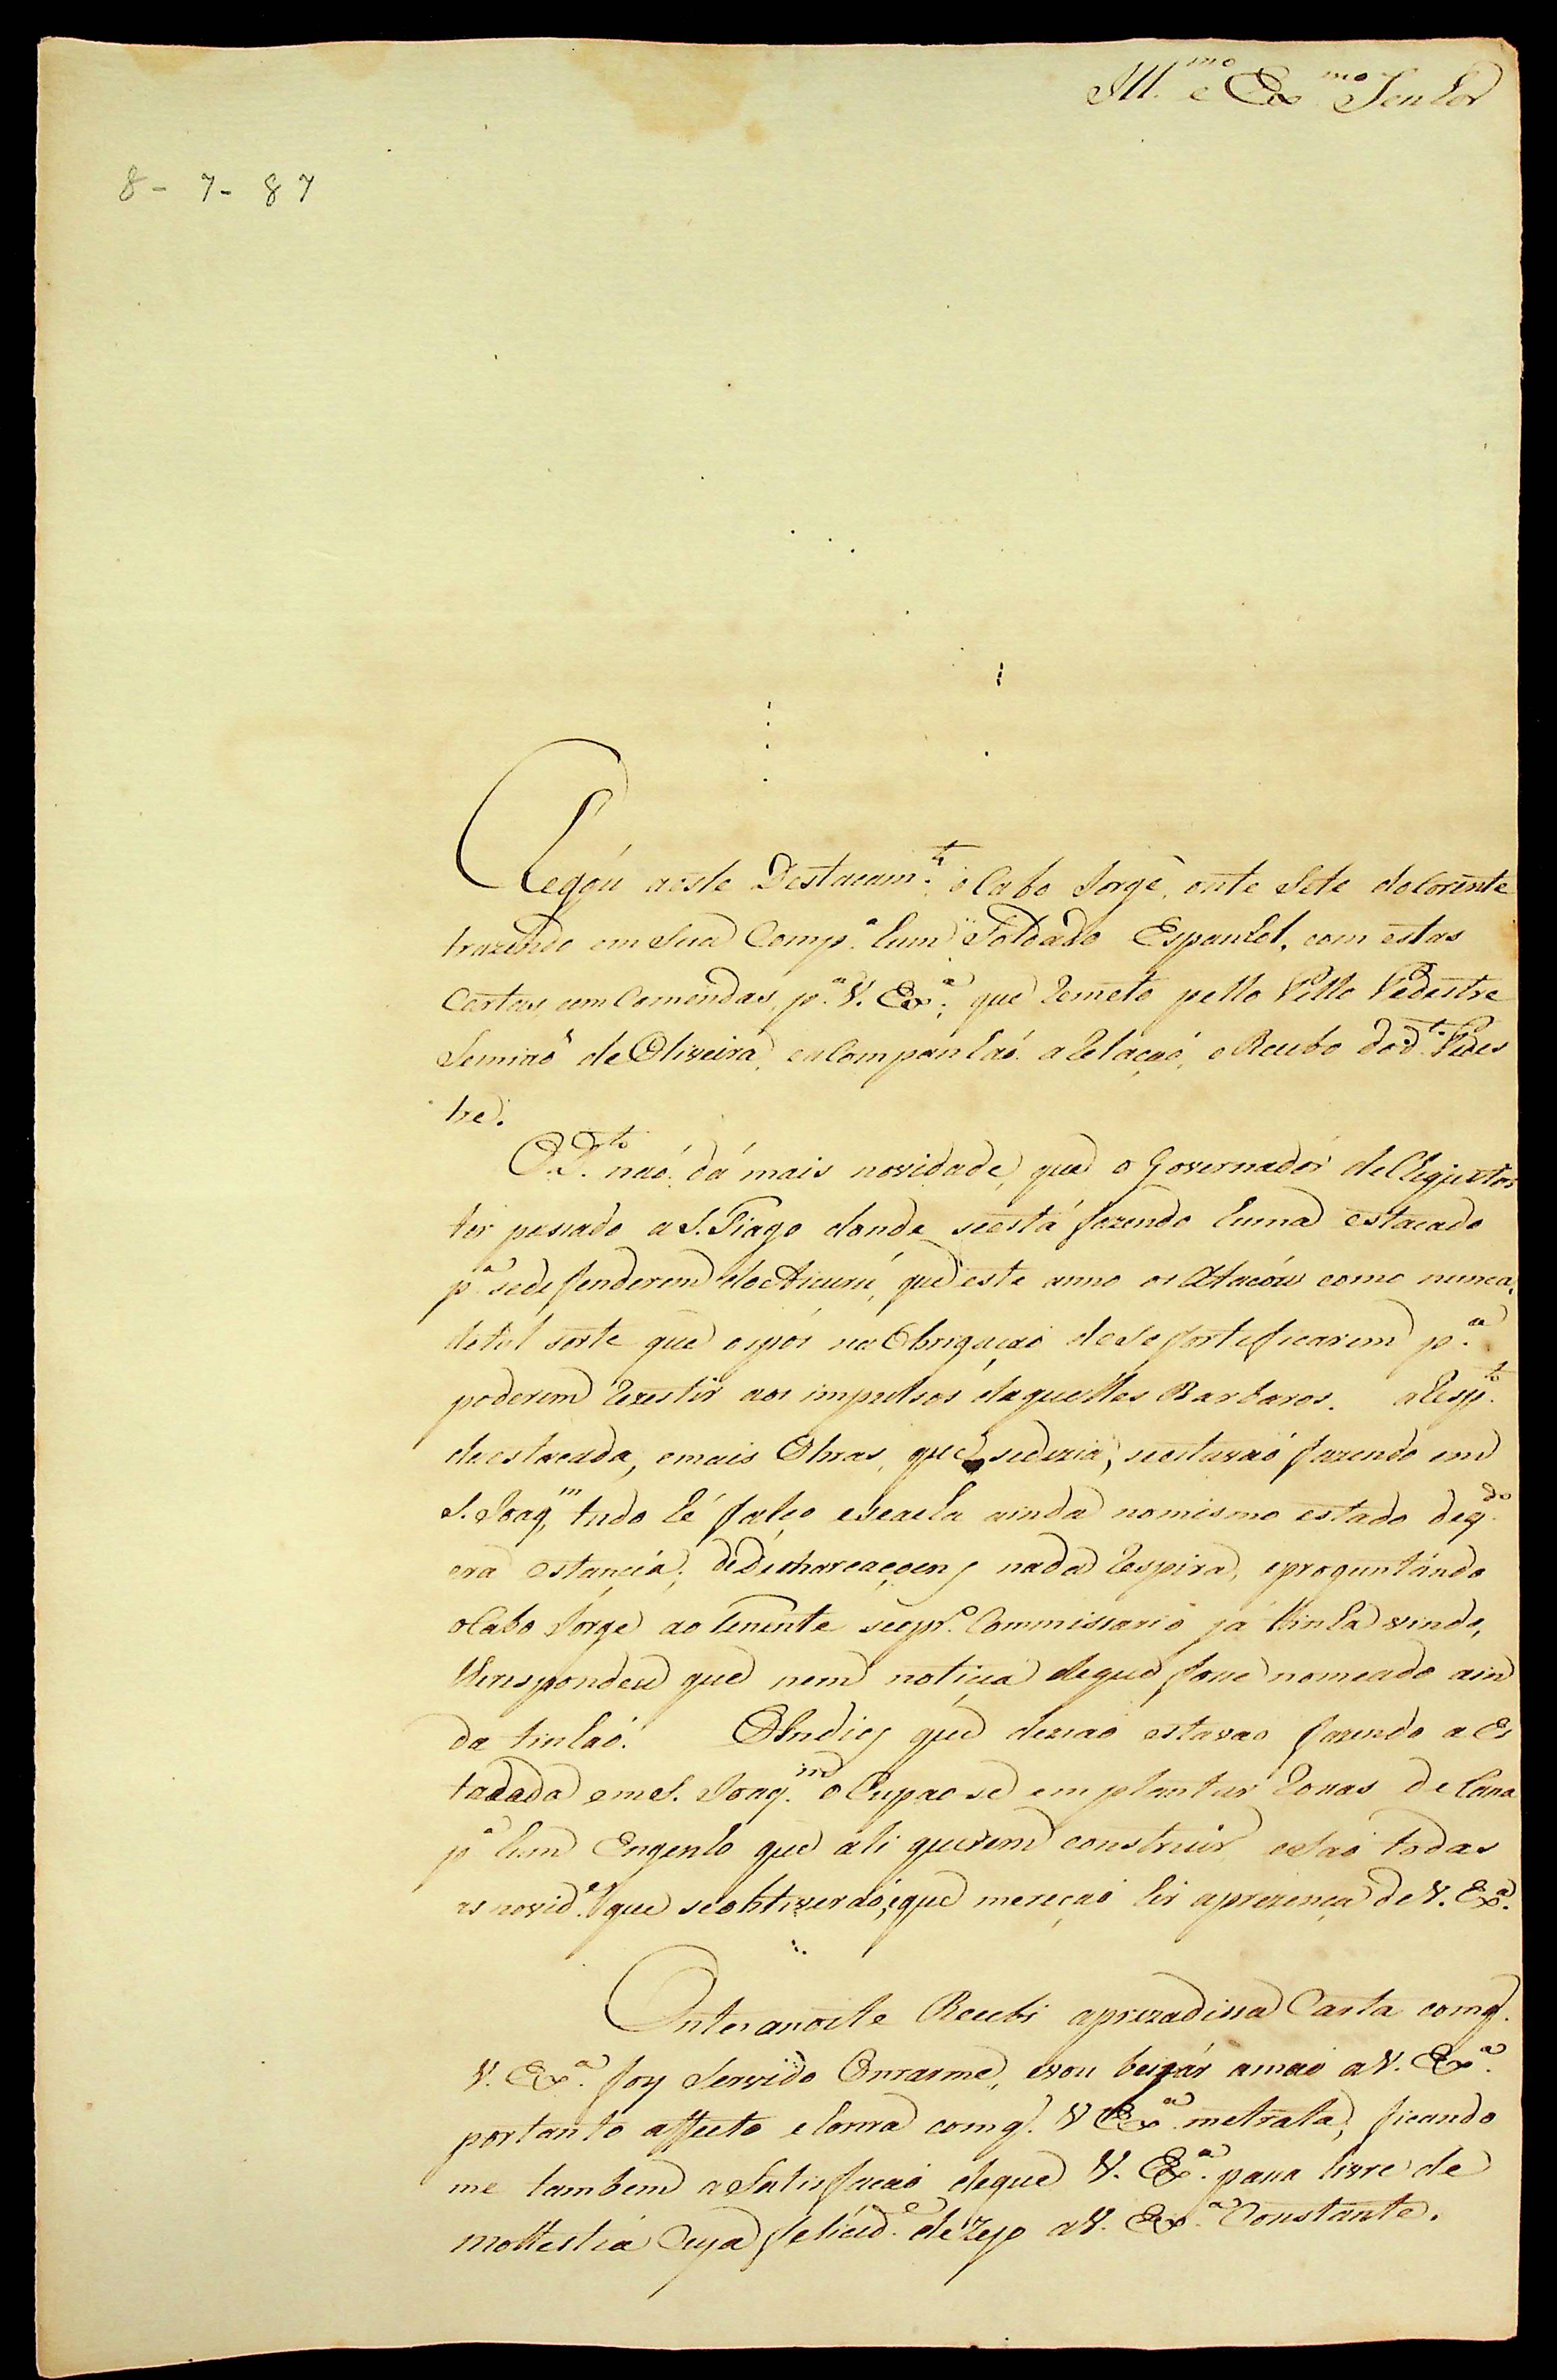 Ill.mo e Ex.mo Senhor
8 - 7 - 87
Chegóu aeste Destacam.to o Cabo Jorge, onte Sete doCorente
trazendo em Sua Comp.a hum Soldado Espanhol, com estas
Cartas, em Comendas, p.a V. Ex.a; que Remeto pello Pedestre
de Oliveira, eaCompanhaó aRelaçaó, e Recibo dod.to Pedes
tre.
O D.to naó dá mais novidade, que o Governador deChiquitos
ter passado a S. Tiago donde seestá fazendo huma estacado
p.a sedefenderem do que este anno os Atacóu como nunca,
detal sorte que ospós na Obrigaçaó deSe fortificarem p.a
poderem Rezestir aos impulsos daquelles Barbaros. aResp.to
daestacada, emais Obras, que sedezia, seestavaó fazendo em
S. Joaq.m, tudo hé falço eseacha ainda nomismo estado deq.do
era estancia; deDemharcaçoens nada Respira, eproguntándo
oCabo Jorge ao Tenente seopr.o Commissario já tinha vindo,
lheRespondeu que nem noticia deque fosse nomeado ain
da tinhaó. OsIndios que deziaó estavaó fazendo a Es
tacada emS. Joaq.m oCupaose em plantar Rossas de Cana
p.a hum Engenho que ali querem construir, esaó todas
as novid.es que seobtiveraó, eque mereçaó hir aprezença de V. Ex.a.
Ontes anoite Recebi aprezadissa Carta comq.
V. Ex.a. foy Servido Onrarme, evou beijár amaó aV. Ex.a.
portanto affecto ehonra comq. V. Ex.a metrata; ficando
me tambem aSatisfacaó deque V. Ex.a. passa livre de
mollestia Cuja felicid.e dezejo aV. Ex.a Constante.